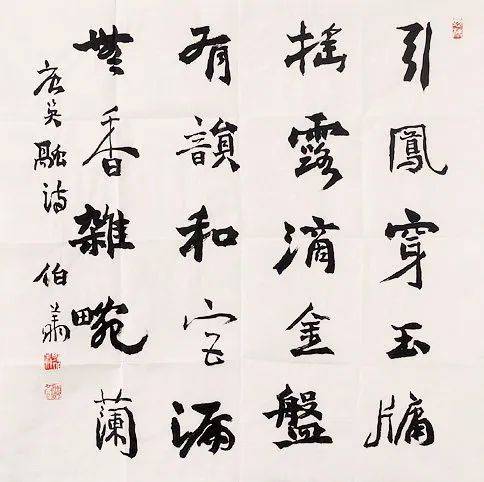 引鳳穿玉牖
搖露滴金盤
有韻和宮漏
無香雜畹蘭
唐吳融诗 伯蕭